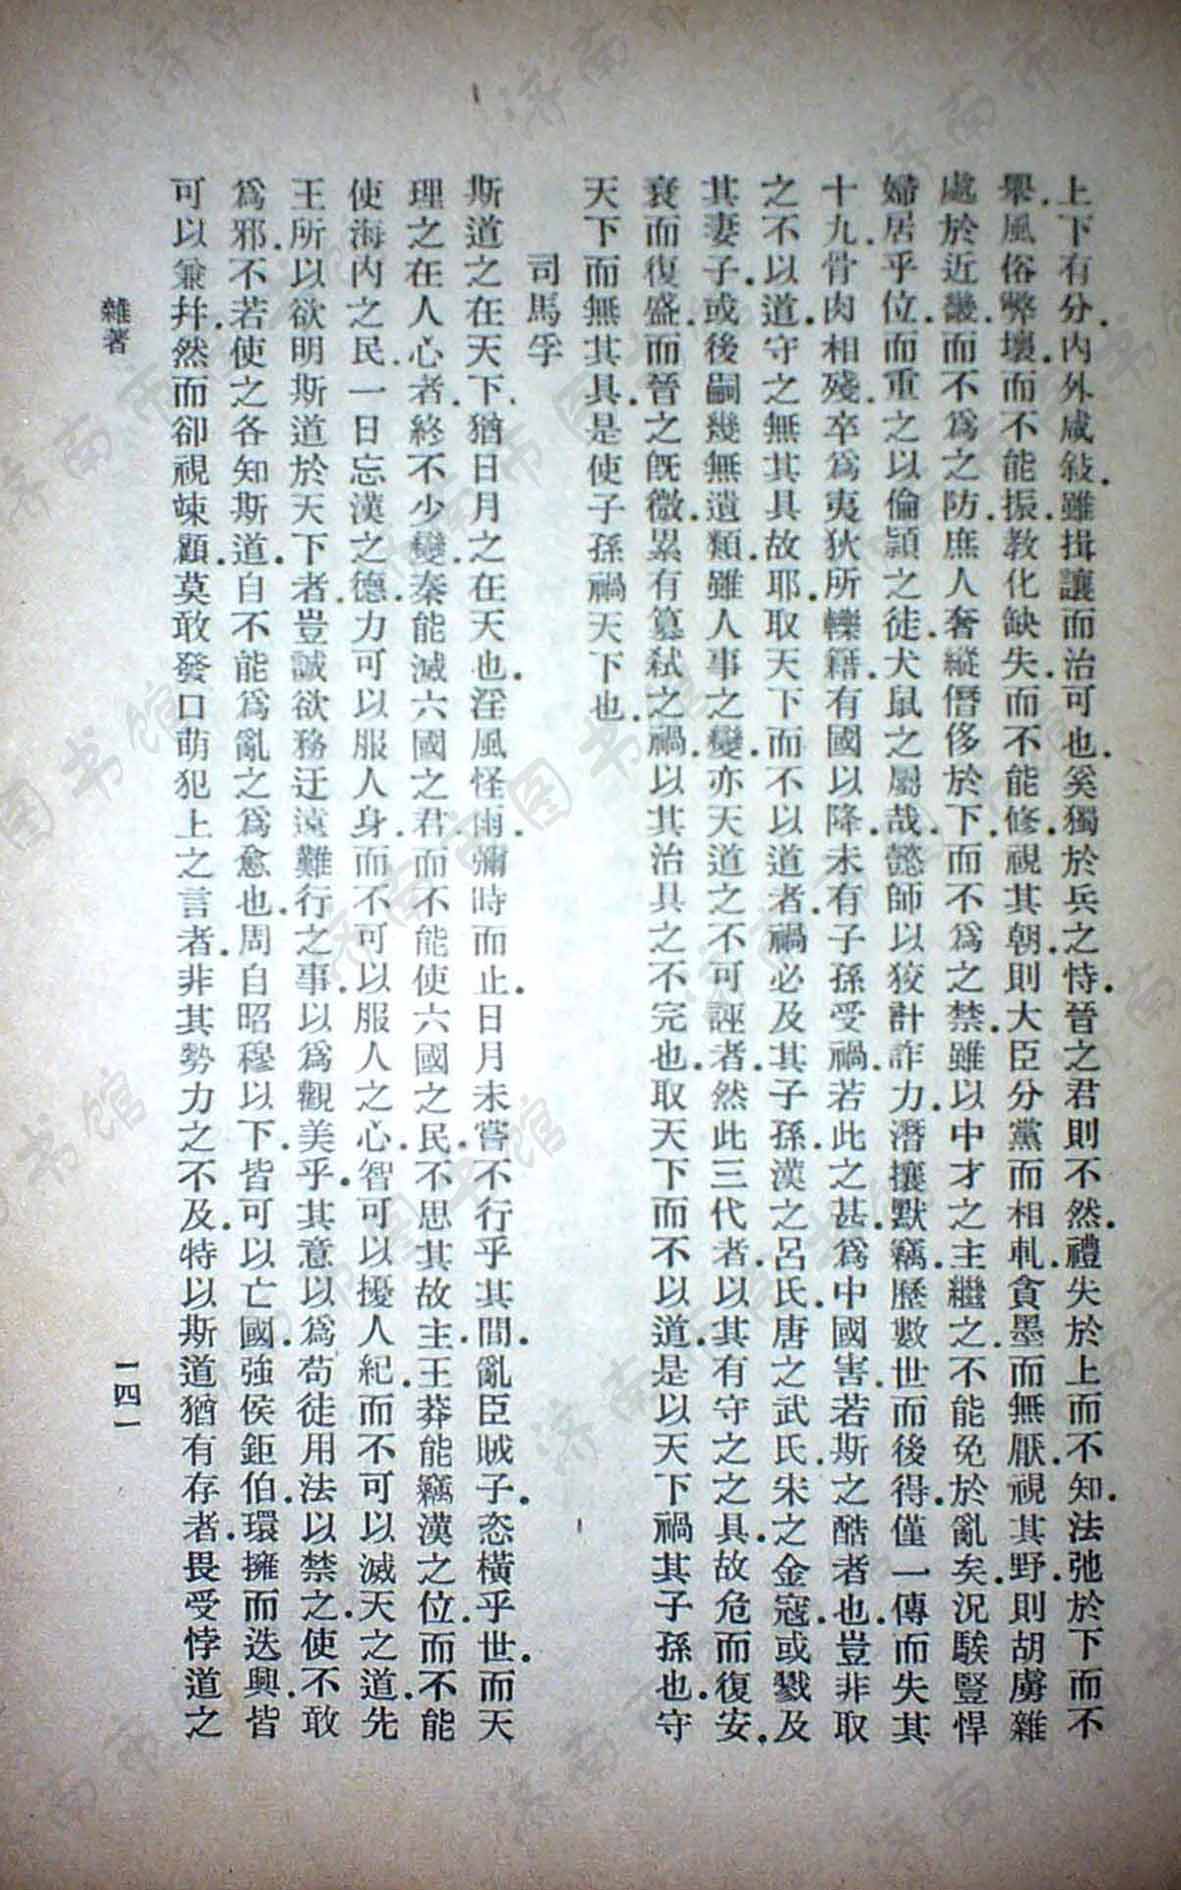 上下有分.內外咸敍.雖揖讓而治可也.奚獨於兵之恃.晉之君則不然.禮失於上而不知.法弛於下而不
舉.風俗弊壞.而不能振.教化缺失.而不能修.視其朝.則大臣分黨而相軋.貪墨而無厭.視其野.則胡虜雜
處於近畿.而不爲之防.庶人奢縱僭侈於下.而不爲之禁.雖以中才之主繼之.不能免於亂矣.況騃豎悍
婦居乎位.而重之以倫頴之徒.犬鼠之屬哉.懿師以狡計詐力.潛攘默竊.歷數世而後得.僅一傳而失其
十九.骨肉相殘.卒爲夷狄所轢籍.有國以降.未有子孫受禍.若此之甚.爲中國害.若斯之酷者也.豈非取
之不以道.守之無其具故耶.取天下而不以道者.禍必及其子孫.漢之呂氏.唐之武氏.宋之金寇.或戮及
其妻子.或後嗣幾無遺類.雖人事之變.亦天道之不可誣者.然此三代者.以其有守之之具.故危而復安.
衰而復盛.而晉之既微.累有簒弒之禍.以其治具之不完也.取天下而不以道.是以天下禍其子孫也.守
天下而無其具.是使子孫禍天下也.
司馬孚
斯道之在天下.猶日月之在天也.淫風怪雨.彌時而止.日月未嘗不行乎其間.亂臣賊子.恣橫乎世.而天
理之在人心者.終不少變.秦能滅六國之君.而不能使六國之民.不思其故主.王莽能竊漢之位.而不能
使海內之民.一日忘漢之德.力可以服人身.而不可以服人之心.智可以擾人紀.而不可以滅天之道.先
王所以欲明斯道於天下者.豈誠欲務迂遠難行之事.以爲觀美乎.其意以爲苟徒用法以禁之.使不敢
爲邪.不若使之各知斯道.自不能爲亂之爲愈也.周自昭穆以下.皆可以亡國.強侯鉅伯.環擁而迭興.皆
可以兼幷.然而卻視竦顧.莫敢發口萌犯上之言者.非其勢力之不及.特以斯道猶有存者.畏受悖道之
雜著
一四一
濟南市图书馆